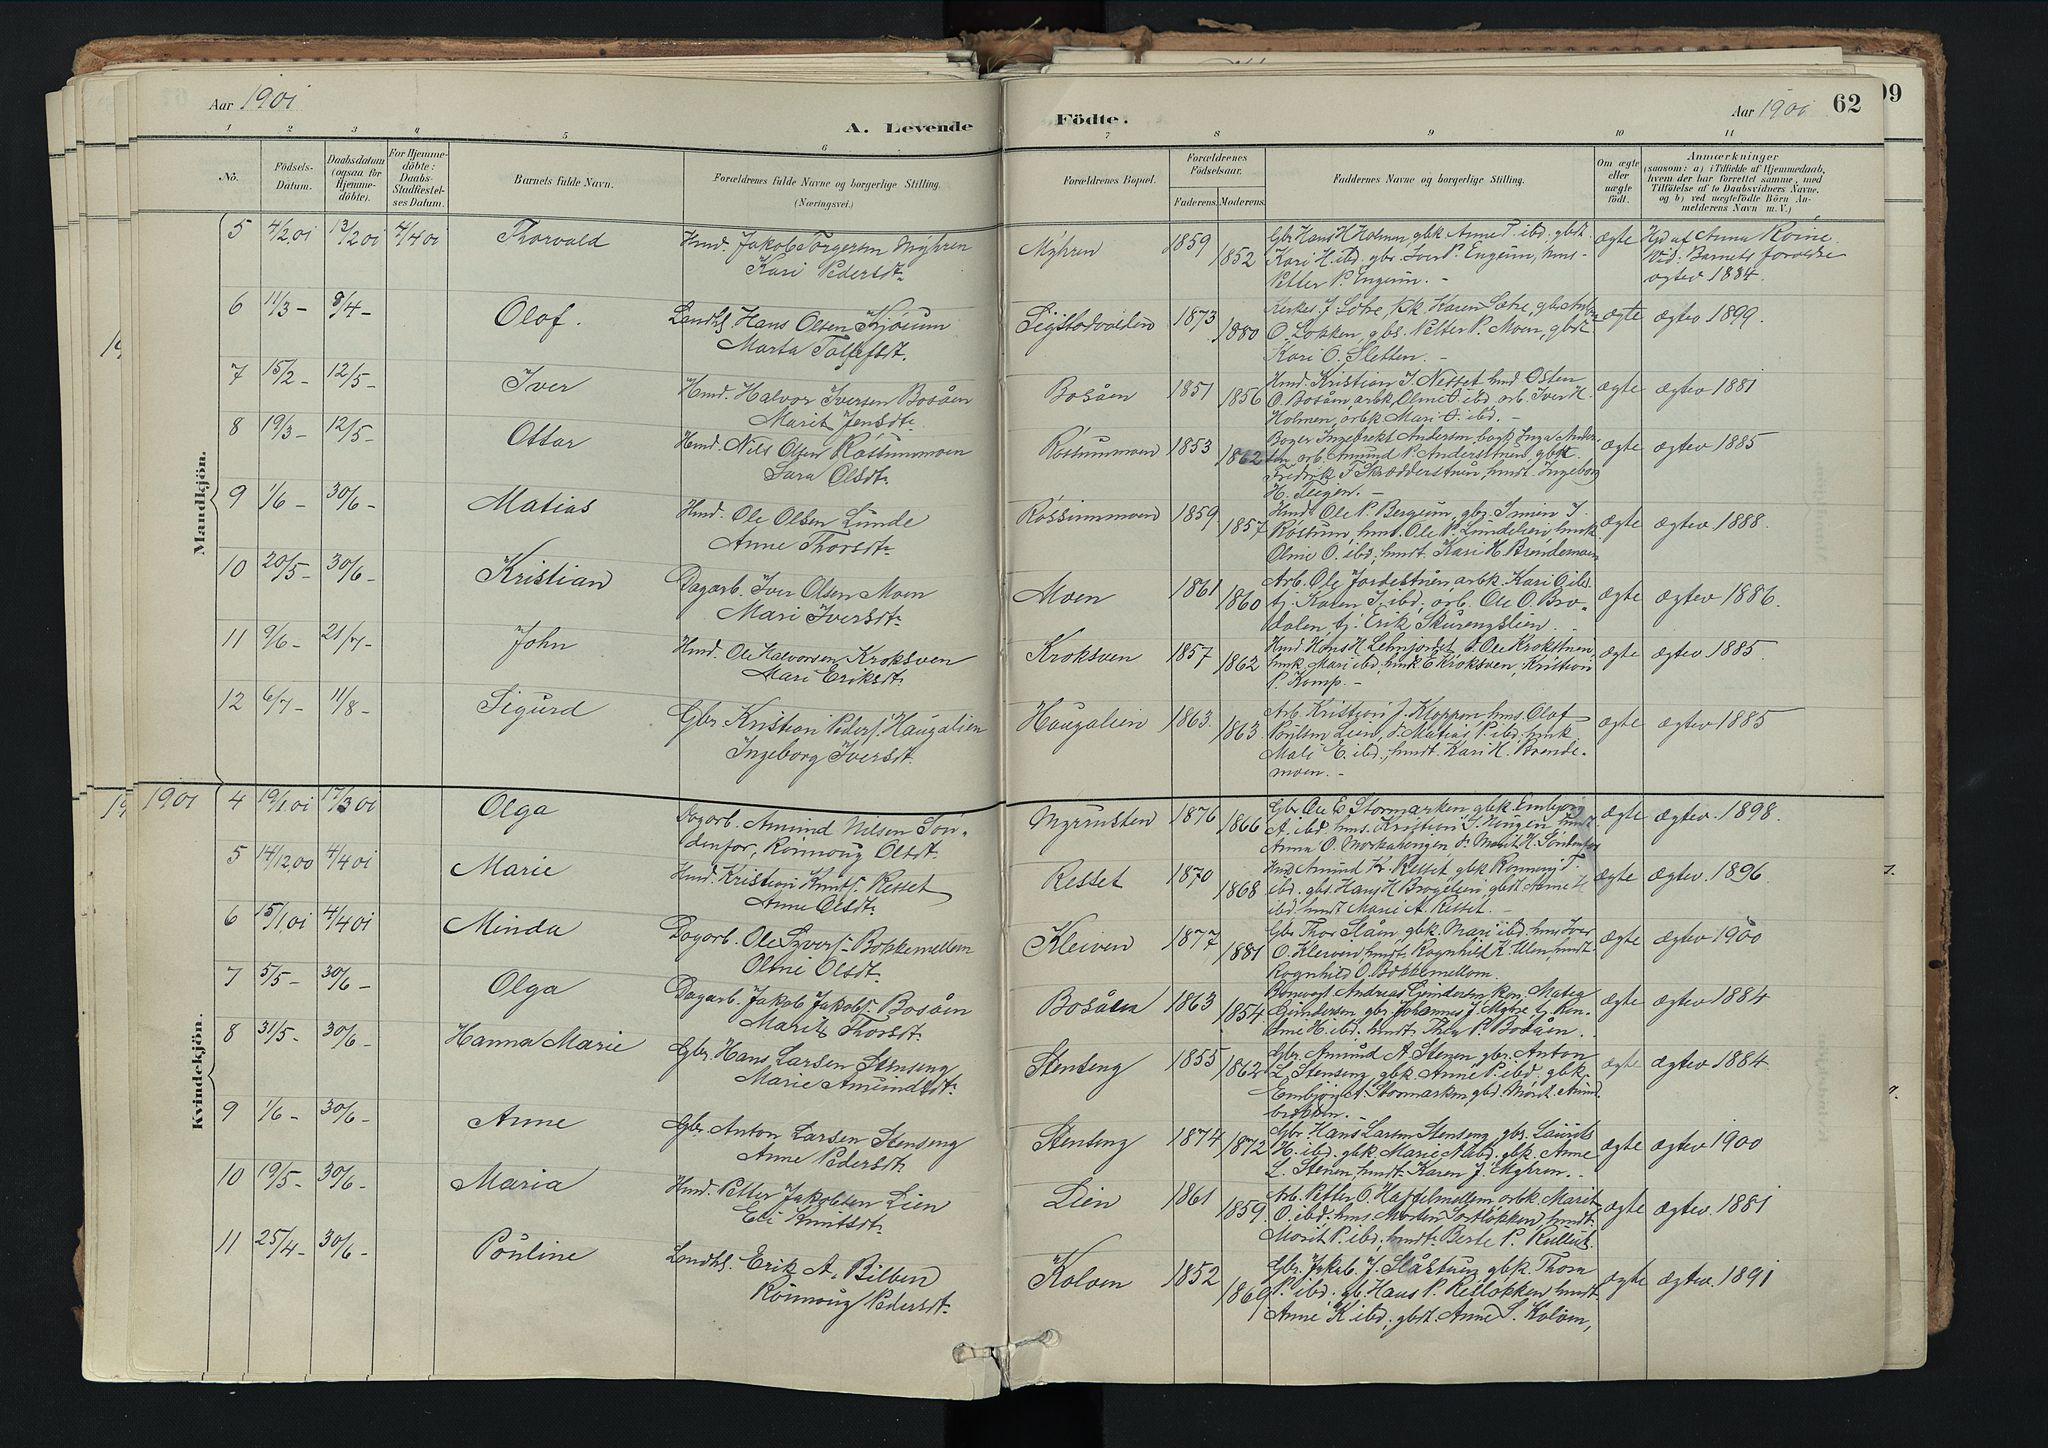 Aar 1901
A. Levende
Födte.
Aar 1901
62
99
1 2 3 4 5 6 7 8 9 10 11
No.
Födsels-Datum.
Daabsdatum (ogsaa för Hjemmedöbte).
For Hjemmedöbte: Daabs-Stadfestelses Datum.
Barnets fulde Navn.
Forældrenes fulde Navne og borgerlige Stilling. (Næringsvei.)
Forældrenes Bopæl.
Forældrenes Födselsaar.
Faderens. Moderens.
Faddernes Navne og borgerlige Stilling.
Om ægte eller uægte födt.
Anmærkninger (saasom: a) i Tilfælde af Hjemmedaab, hvem der har forrettet samme, med Tilföielse af to Daabsvidners Navne, og b) ved uægtefödte Börn Anmelderens Navn m. V.)
Mandkjön.
5 4/2 01 13/2 01 4/4 01 Thorvald Hmd. Jakob Torgersen Myhren
Kari Pedersdt. Myhren 1859 1852
Gbr Hans H Holmen gbk Anne P. ibd. gbdt.
Kari H. ibd. gbr. Iver P. Engeun, hms.
Petter P. Engeun.
ægte Hjd af Anna Roine.
Vid. Barnets forældre
ægtev 1884.
6 11/3 - 8/4 - Olof. Landhl. Hans Olsen Kjörum
Marta Tollefsdt. 1873 1880
O. Løkken, gbs. Petter P. Moen, gbdt
Kari O. Sletten. -
ægte ægtev 1899
7 15/2 - 12/5 - Iver Hmd. Halvor Iversen Bosåen
Marit Jensdt. Bosåen 1851 1856
Hmd. Kristian J. Nesset hmd Osten
O. Bosåen arbk. Olme O. ibd arb. Iver H.
Holmen, arbk Mari O. ibd. -
ægte ægtev 1881
8 19/3 - 12/5 - Ottar Hmd. Nils Olsen Röstummoen
Sara Olsdt. Röstummoen 1853 1862
Fredrik T Skrædderstuen, hmdt. Ingeborg
H. Teigen. -
ægte ægtev 1885
9 1/6 - 30/6 - Matias Hmd. Ole Olsen Lunde
Anne Thorsdt. 1859 1857
Hmd Ole P. Bergeun, gbr.
Olme O. ibd, hmdt. Kari H. Brendemoen
ægte ægtev 1888.
10 20/5 - 30/6 - Kristian Dagarb. Iver Olsen Moen
Mari Iversdt. Moen 1861 1860
Arb. Ole Jordestuen, arbk. Kari O ibd
tj. Karen I. ibd, arb. Ole O. Bro-
dalen, tj. Erik Skurengslien. -
ægte ægtev 1886.
11 9/6 - 21/7 - John Hmd. Ole Halvorsen Kroksven
Mari Eriksdt. Kroksven 1857 1862
hmk. Mari ibd, hmdt E Kroksven, Kristian
P. Komp. -
ægte ægtev 1885.
12 6/7 - 11/8 - Sigurd Gbr Kristian Peders. Haugalien
Ingeborg Iversdt. Haugalien 1863. 1863
Arb. Kristian J. Kloppen hms. Olaf
Poulsen Lien, Matias P. ibd, hmk
Mali E. ibd., hmdt. Kari H. Brende-
moen. -
ægte ægtev 1885
Kvindekjön.
1901 4 19/1 01 17/3 01 Olga Dagarb. Amund Nilsen Sön-
denfor, Rönnoug Olsdt. 1876 1866
Gbr. Ole E. Stormarken gbk. Embjörg
A. ibd. hms. Kristian
ægte ægtev. 1898.
5 14/12.00 4/4 01 Marie Hmd. Kristian Knuts. Resset
Anne Olsdt. Resset 1870 1868
Hmd. Amund K. Resset gbk Ronnaug T.
ibd. gbs. Hans H. Brogelien
ibd. hmdt Mari A. Resset. -
ægte ægtev. 1896
6 15/1.01 4/4 01 Minda Dagarb. Ole Syvers. Bakkemellem
Olme Olsdt. Kleiven 1877 1881
Gbr. Thor Slåen, gbk. Mari ibd. hms Iver
O. Kleiven, hmdt Ragnhild K. Ulen, hmdt.
Ragnhild O. Bakkemellem.
ægte ægtev 1900
7 5/5 - 30/6 - Olga Dagarb. Jakob Jakobs. Bosåen
Marit Thorsdt. Bosåen 1863 1854
ægte ægtev 1884
8 31/5 - 30/6 - Hanna Marie Gbr. Hans Larsen Stenseng
Marie Amundsdt. Stenseng 1855 1862
Gbr. Amund A Stenen gbr. Anton
L. Stenseng gbk. Anne P. ibd. gbk.
Embjörg A. Stormarken, gbd. Marit Amund
brækken. -
ægte ægtev 1884
9 1/6 - 30/6 - Anne Gbr. Anton Larsen Stenseng
Anne Pedersdt. Stenseng 1874 1872
Gbr. Hans Larsen Stenseng gbr. Laurits
H. ibd. gbk. Marie A ibd. gbk. Anne
L. Stenen, hmdt. Karen J. Myhren. -
ægte ægtev 1900
10 19/5 - 30/6 - Maria Hmd. Petter Jakobsen Lien
Eli Knutsdt. Lien 1861 1859
Arb. Petter O. Haffelmellem arbk. Marit
O. ibd., hms Morten Sætløkken, hmdt.
Marit P. ibd., hmdt. Berte P. Rellien.
ægte ægtev. 1881
11 25/4 - 30/6 - Pouline Landhl. Erik A. Bilben
Rönnoug Pedersdt. Kolven 1852 1869
Gbr. Jakob J. Slåstuen gbk. Thora
P. ibd. gb. Hans P. Relløkken, hmdt.
Anne K ibd., gbdt. Anne S. Kolven,
ægte ægtev. 1891